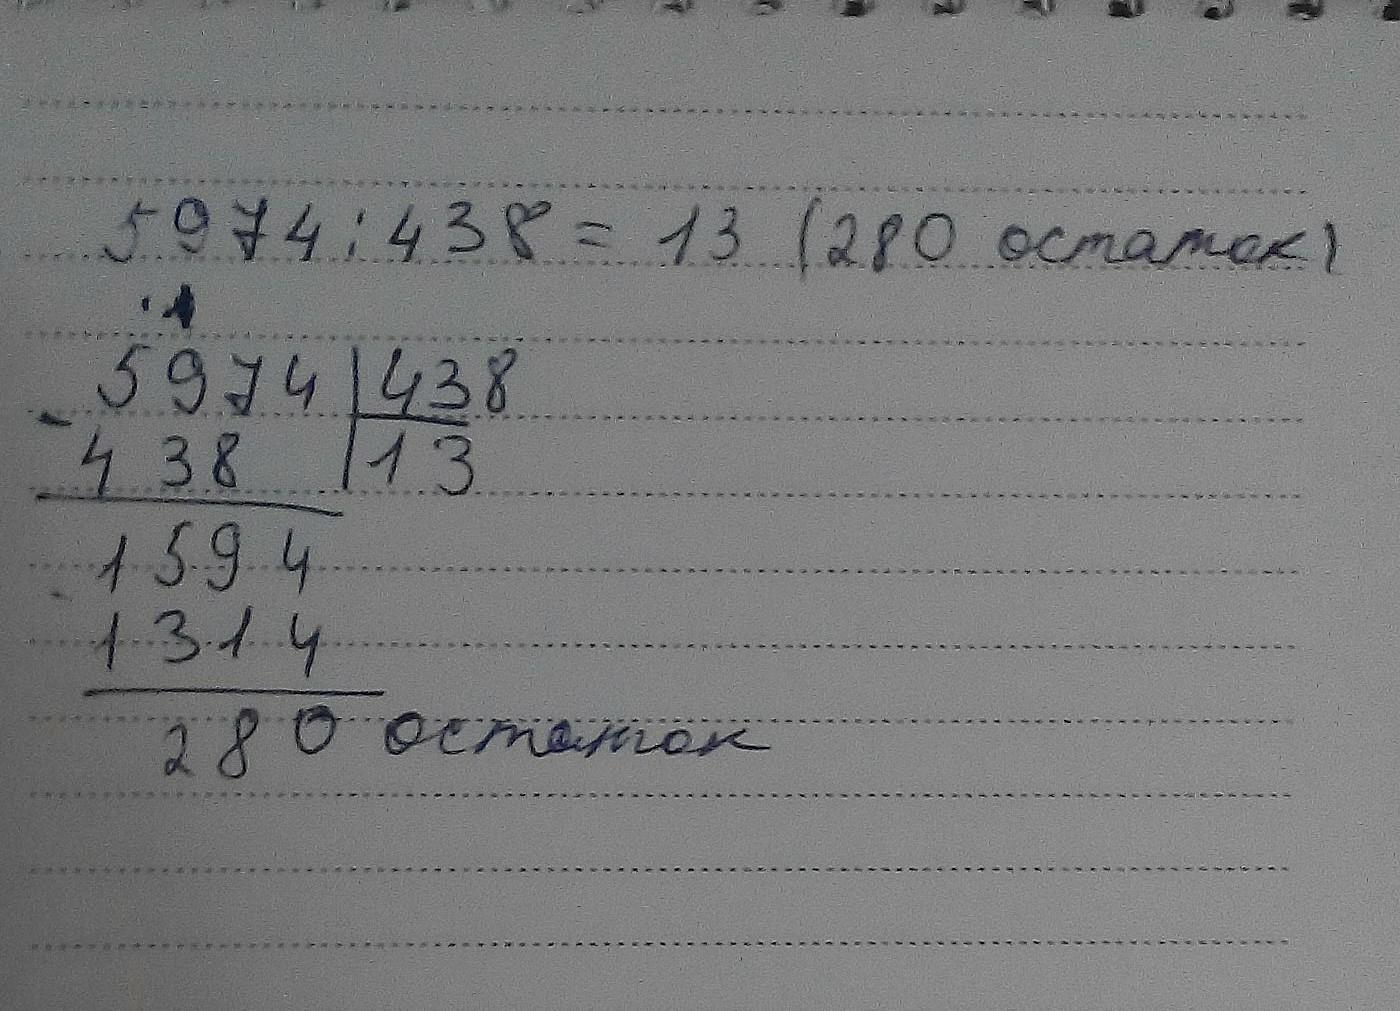 5974:438 = 13 (280 остаток)
· 1
5974 | 438
- 438 | 13
1594
- 1314
280 остаток